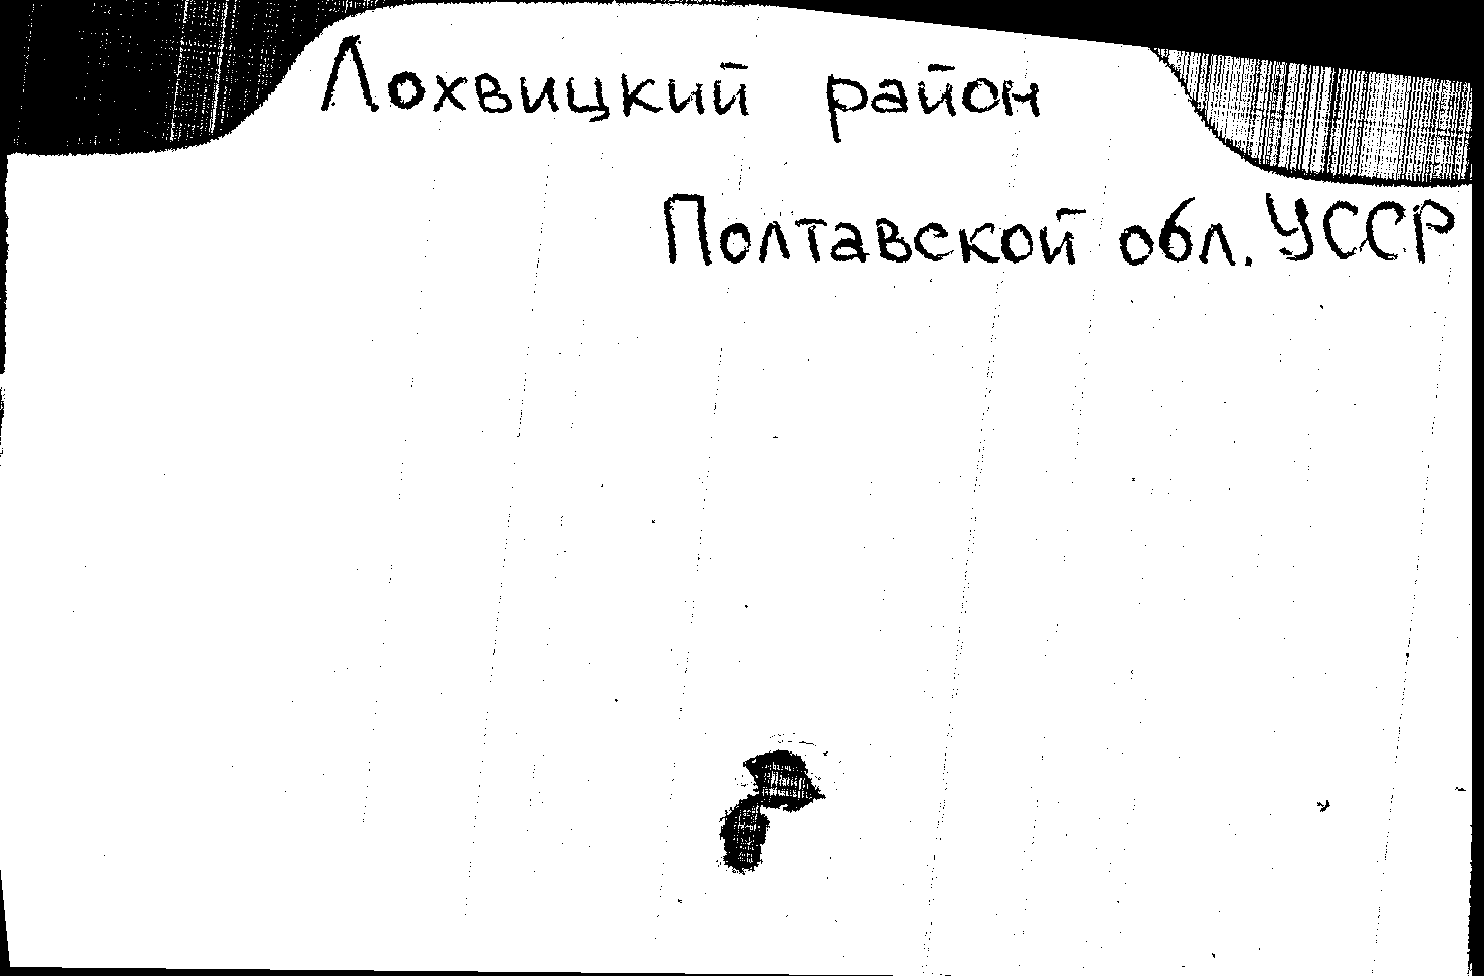 Лохвицкий район
Полтавской обл. УССР